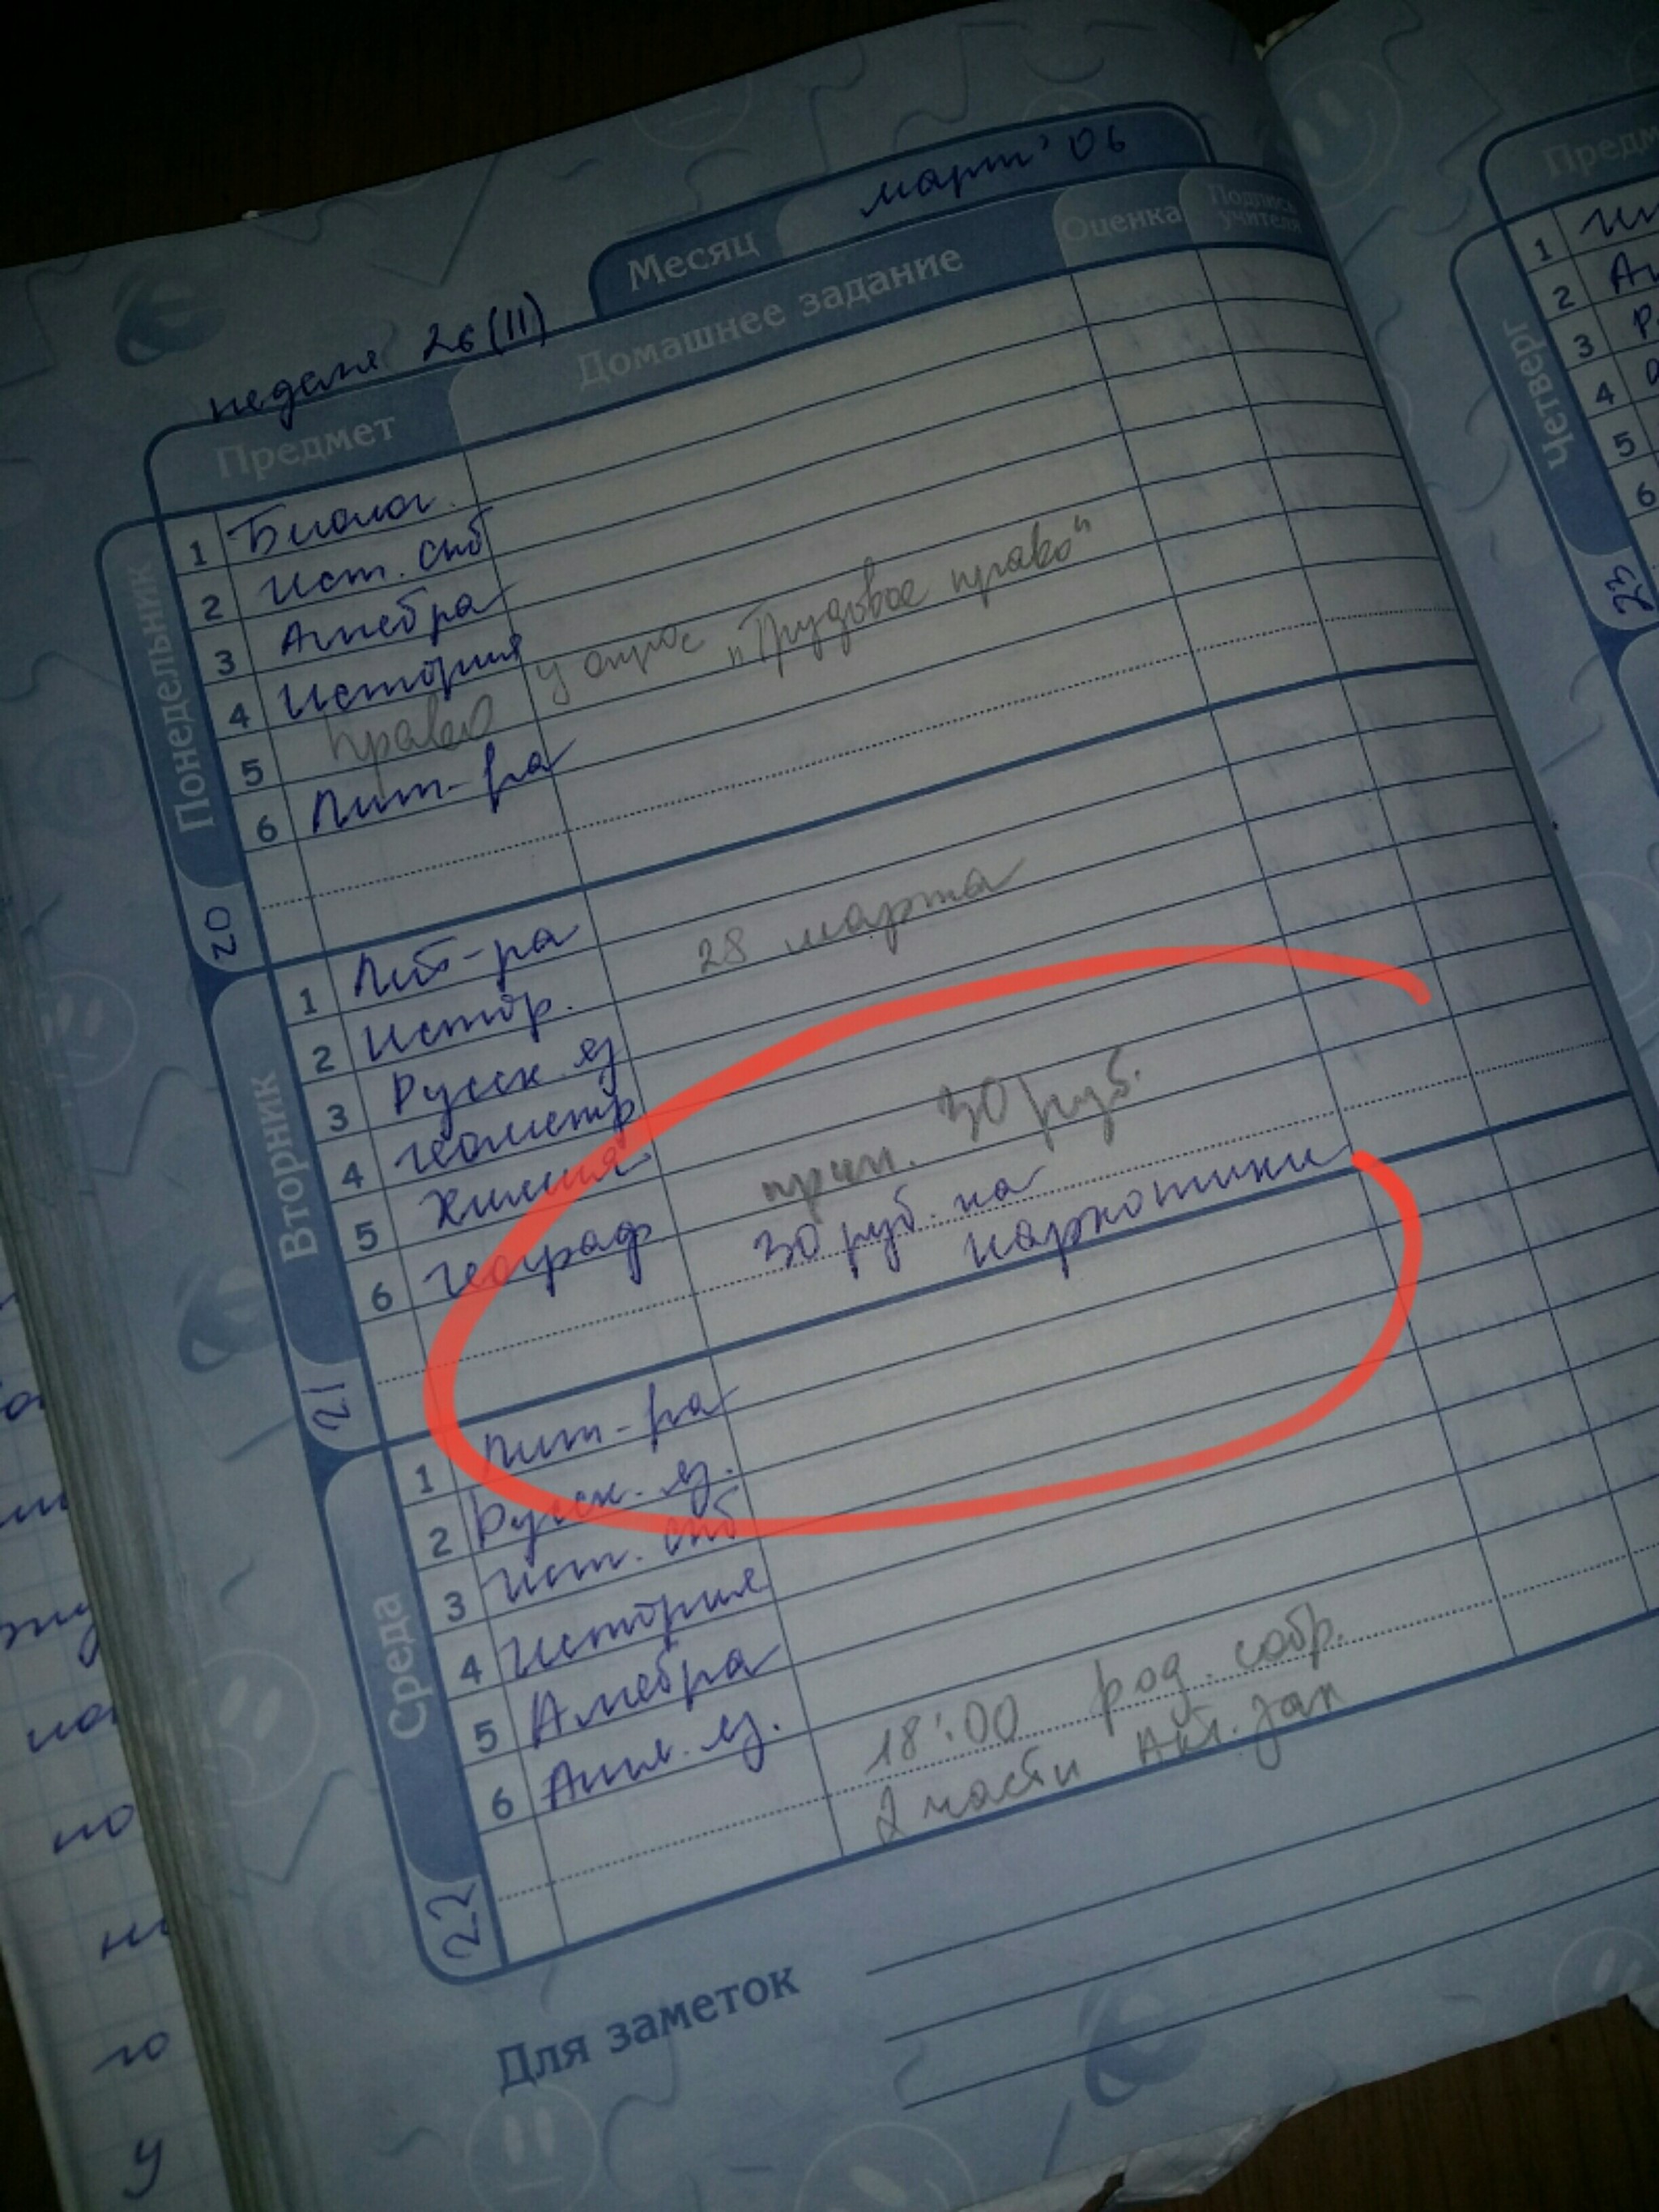 март'06
Месяц
неделя 26 (II)
Предмет
Домашнее задание
Оценка
Подпись учителя
Понедельник
20
1 Биолог.
2 Ист. СПб
3 Алгебра
4 История
5 Право у опрос "Трудовое право"
6 Лит-ра
Вторник
21
1 Лит-ра
2 Истор. 28 марта
3 Русск. яз
4 геометр
5 Химия
6 географ. прин. 30 руб.
30 руб. на
наркотики
Среда
22
1 Лит-ра
2 Русск. яз.
3 Ист. СПб
4 История
5 Алгебра
6 Англ. яз.
18:00 род. собр.
2 части Акт. зал
Для заметок
Четверг
23
1
2
3
4
5
6